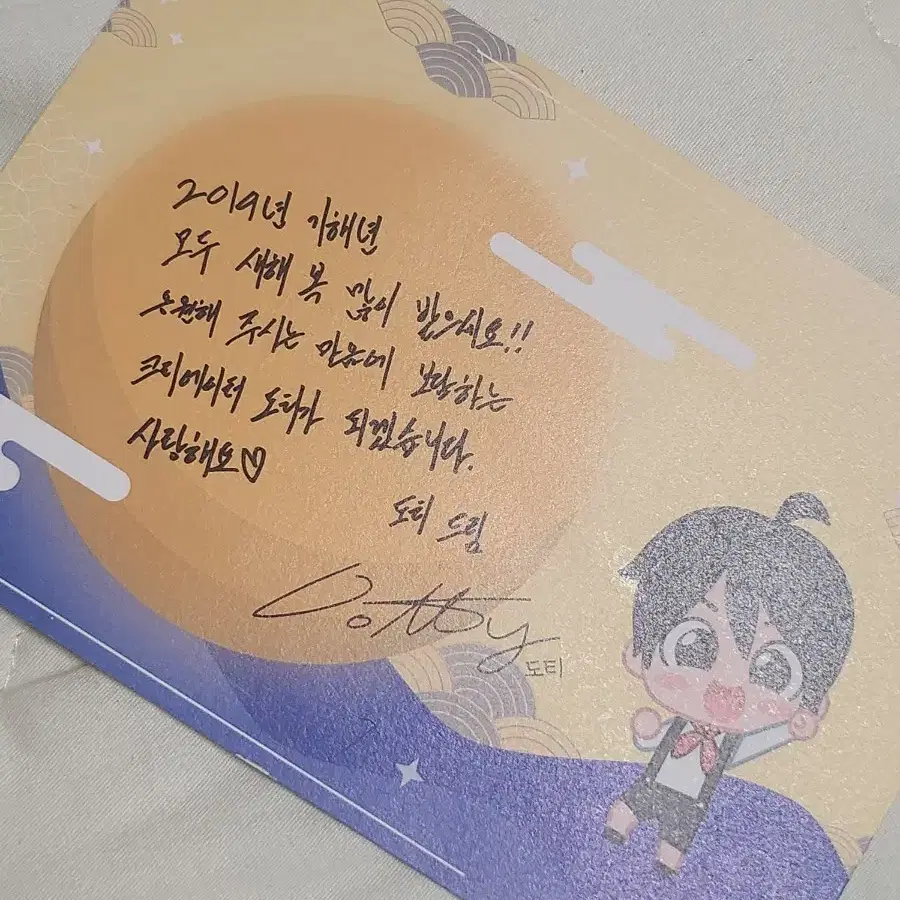 2019년 기해년
모두 새해 복 많이 받으세요!!
응원해 주시는 마음에 보답하는
크리에이터 도티가 되겠습니다.
사랑해요♡
도티 드림
Dotty
도티